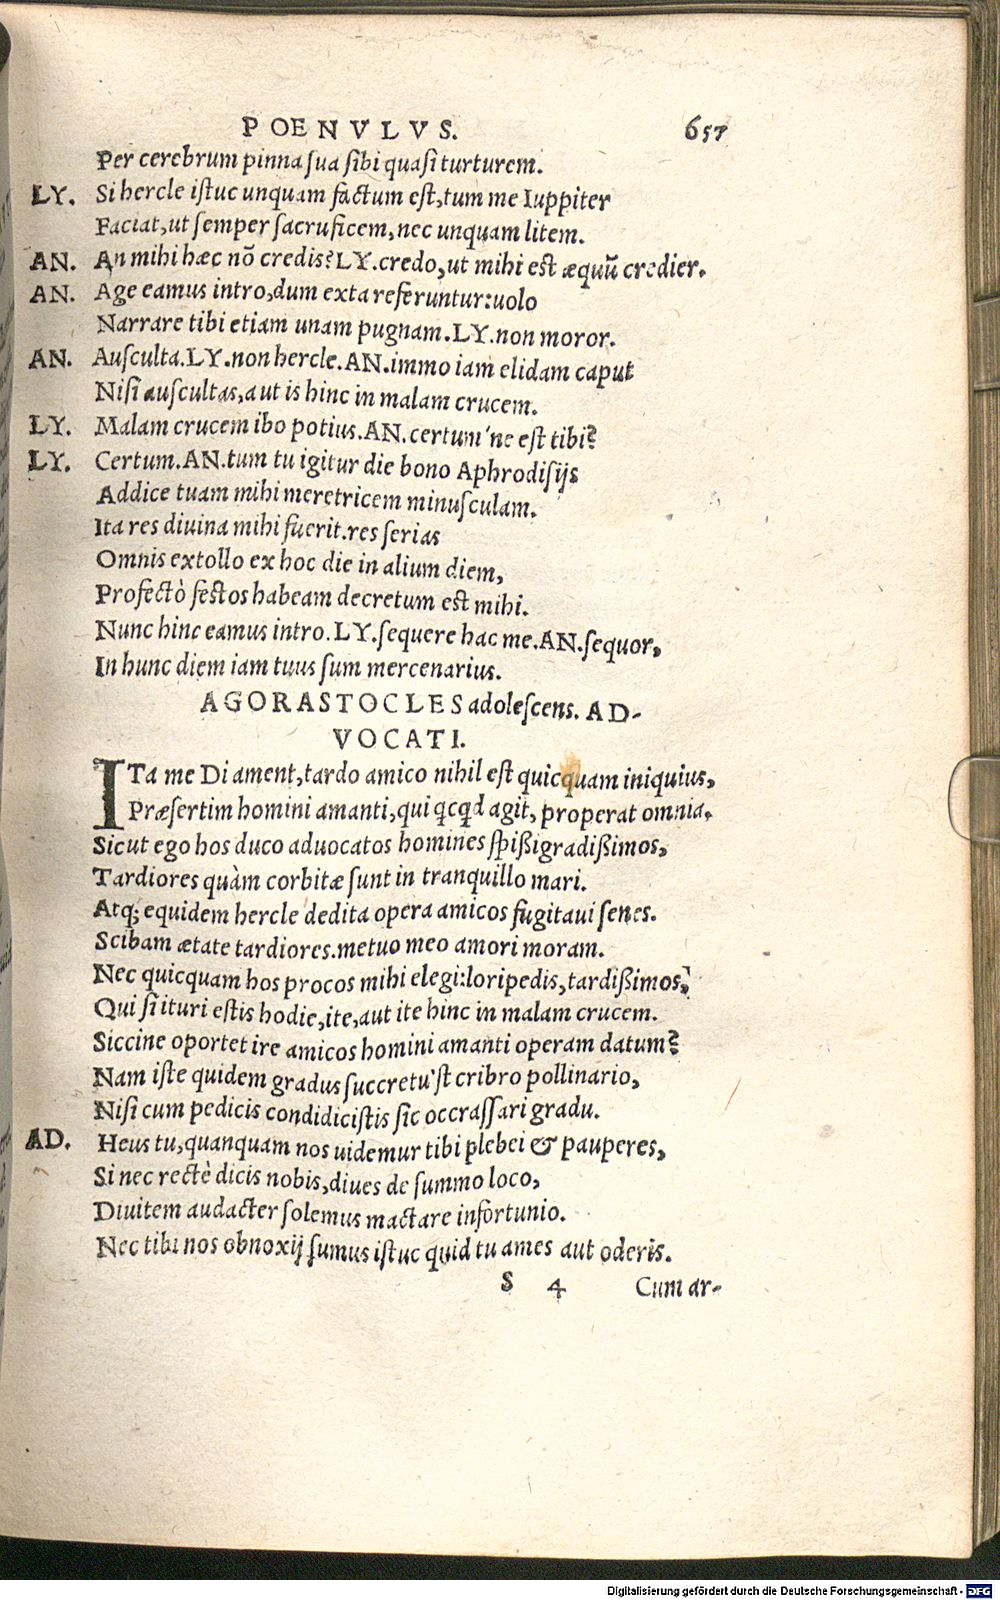 POENVLVS. 657
Per cerebrum pinna sua sibi quasi turturem.
LY. Si hercle istuc unquam factum est, tum me Iuppiter
Faciat, ut semper sacruficem, nec unquam litem.
AN. An mihi hæc nõ credis? LY. credo, ut mihi est æquũ credier.
AN. Age eamus intro, dum exta referuntur: uolo
Narrare tibi etiam unam pugnam. LY. non moror.
AN. Ausculta. LY. non hercle. AN. immo iam elidam caput
Nisi auscultas, aut is hinc in malam crucem.
LY. Malam crucem ibo potius. AN. certum'ne est tibi?
LY. Certum. AN. tum tu igitur die bono Aphrodisijs
Addice tuam mihi meretricem minusculam.
Ita res diuina mihi fuerit. res serias
Omnis extollo ex hoc die in alium diem,
Profectò festos habeam decretum est mihi.
Nunc hinc eamus intro. LY. sequere hac me. AN. sequor,
In hunc diem iam tuus sum mercenarius.
AGORASTOCLES adolescens. AD-
VOCATI.
ITa me Di ament, tardo amico nihil est quicquam iniquius,
Præsertim homini amanti, qui qcqd agit, properat omnia.
Sicut ego hos duco aduocatos homines spißigradißimos,
Tardiores quàm corbitæ sunt in tranquillo mari.
Atq; equidem hercle dedita opera amicos fugitaui senes.
Scibam ætate tardiores. metuo meo amori moram.
Nec quicquam hos procos mihi elegi: loripedis, tardißimos,
Qui si ituri estis hodie, ite, aut ite hinc in malam crucem.
Siccine oportet ire amicos homini amanti operam datum?
Nam iste quidem gradus succretu'st cribro pollinario,
Nisi cum pedicis condidicistis sic occrassari gradu.
AD. Heus tu, quanquam nos uidemur tibi plebei & pauperes,
Si nec rectè dicis nobis, diues de summo loco,
Diuitem audacter solemus mactare infortunio.
Nec tibi nos obnoxij sumus istuc quid tu ames aut oderis.
S 4 Cum ar-
Digitalisierung gefördert durch die Deutsche Forschungsgemeinschaft - DFG